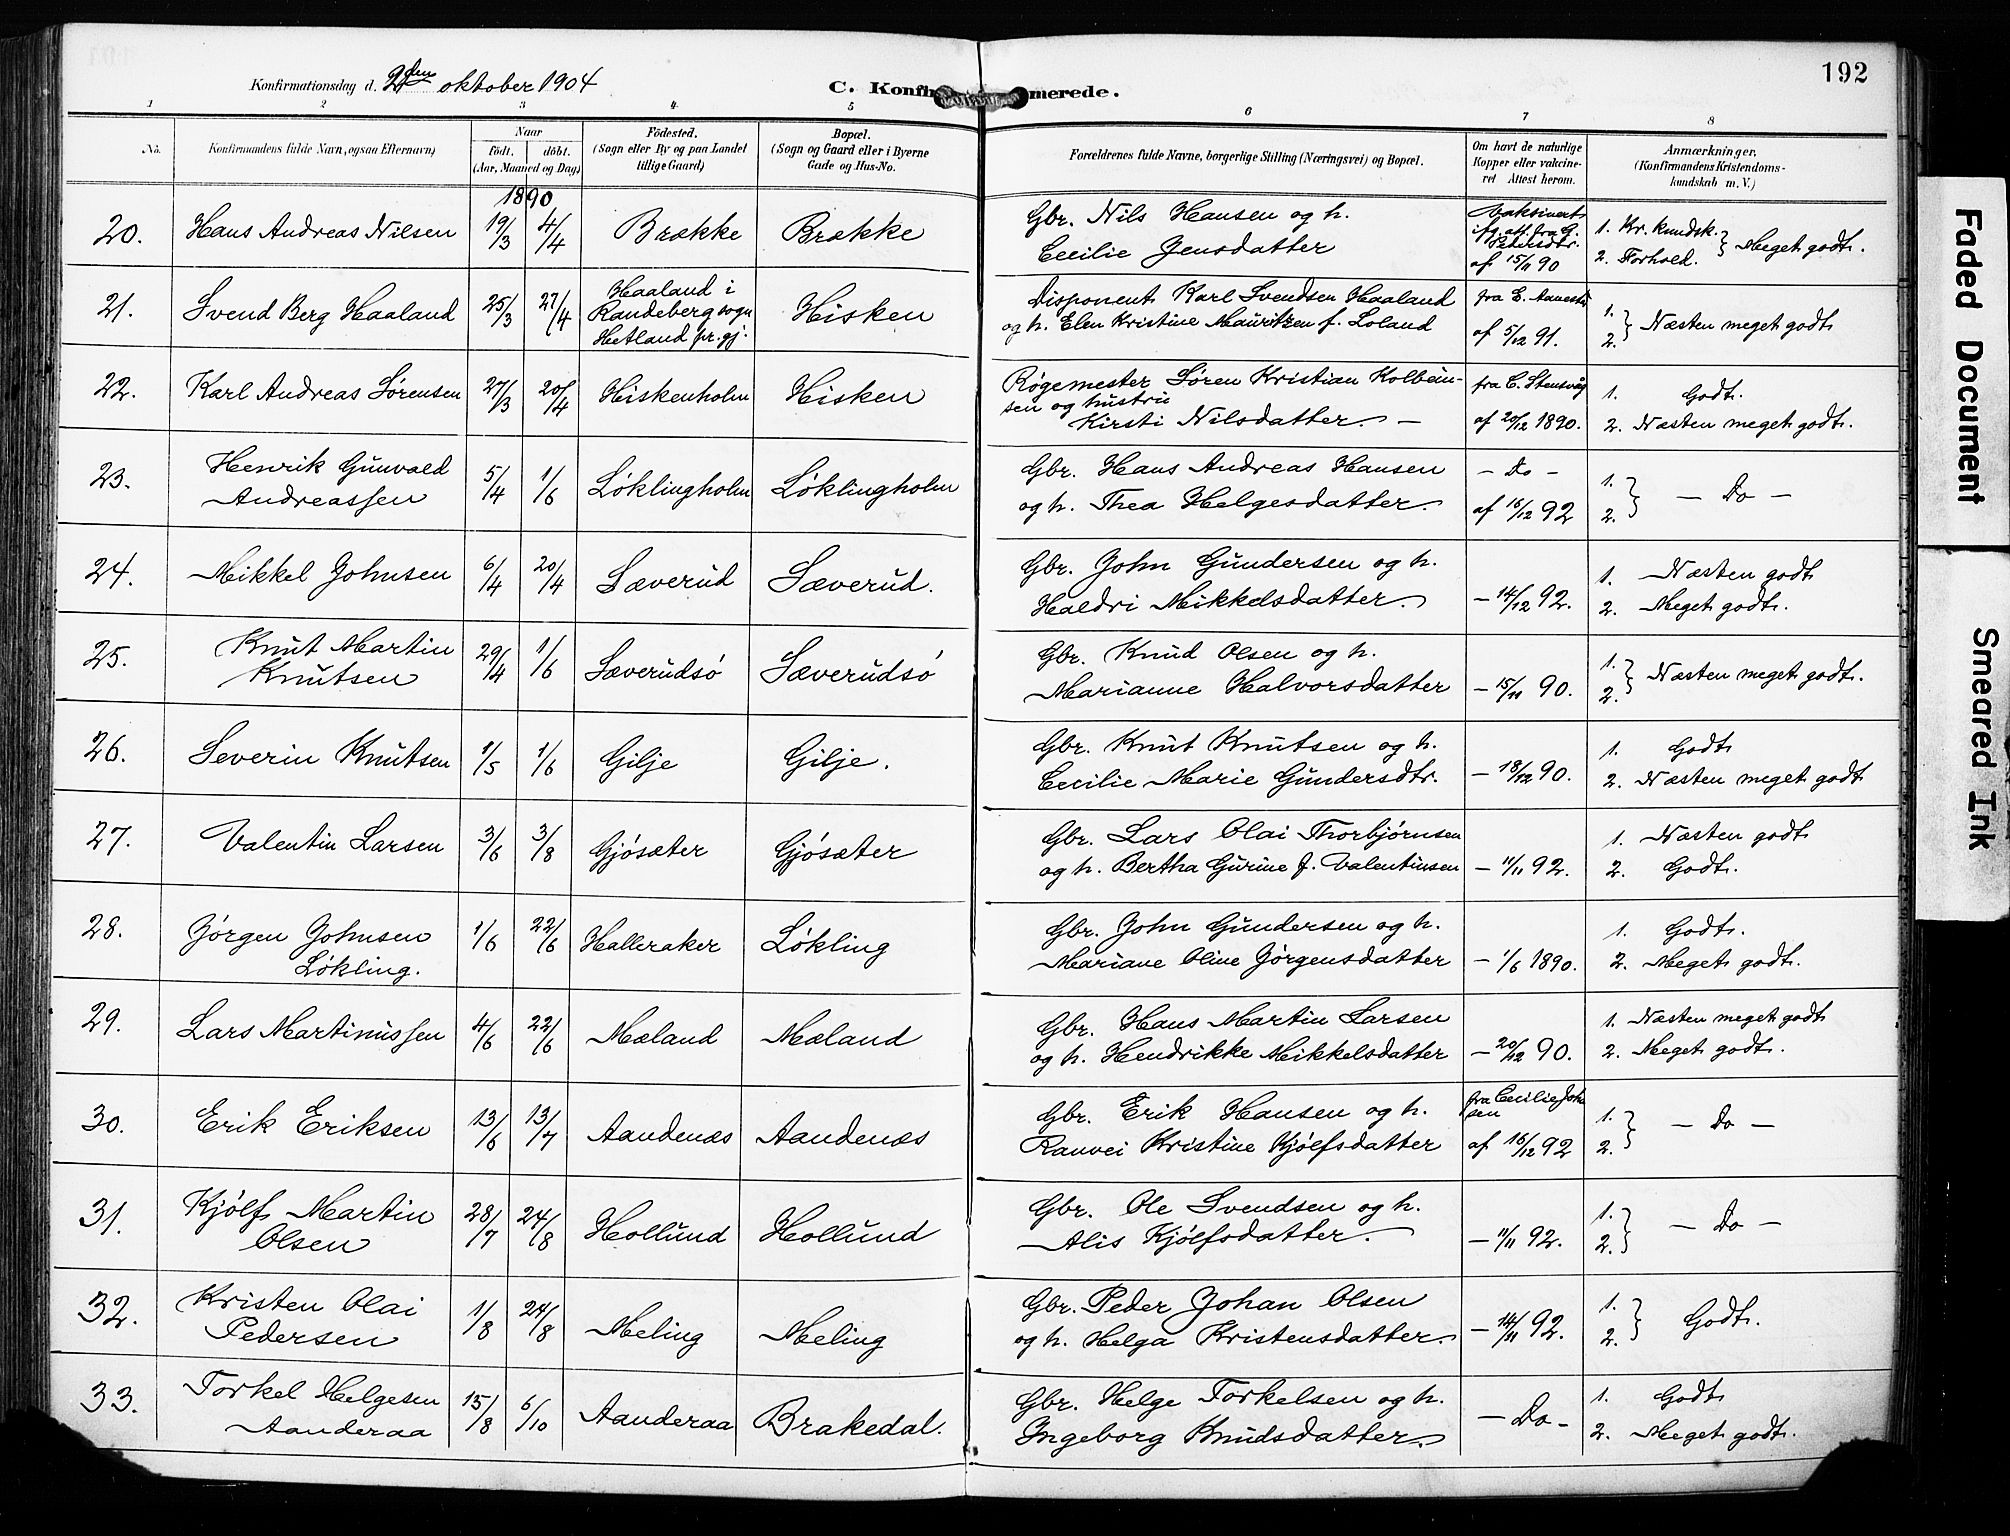 192
Konfirmationsdag d. 2den oktober 1904
C. Konfirmerede.
1 2 3 4 5 6 7 8
No. Konfirmandens fulde Navn, ogsaa Efternavn) Naar Födt. döbt. (Aar, Maaned og Dag) Födested. (Sogn eller By og paa Landet tillige Gaard) Bopæl. (Sogn og Gaard eller i Byerne Gade og Hus-No. Forældrenes fulde Navne, borgerlige Stilling (Næringsvei) og Bopæl. Om havt de naturlige Kopper eller vakcineret Attest herom. Anmærkninger, (Konfirmandens Kristendomskundskab m. V.)
1890
20. Hans Andreas Nilsen 19/3 4/4 Brække Brække Gbr. Nils Hansen og h. Vaksinert ifg. att. fra G. 1. Kr. kundsk. } Meget godt.
Cecilie Jensdatter af 15/11 90 2. Forhold.
21. Svend Berg Haaland 25/3 27/4 Haaland i Randeberg sogn Hetland pr.gj. Hisken Disponent Karl Svendsen Haaland fra E. 1. } Næsten meget godt
og h. Elen Kristine Mauritzen f. Loland af 5/12 91. 2.
22. Karl Andreas Sørensen 27/3 20/4 Hiskenholm Hisken Røgemester Søren Kristian Kolbein- fra C. Stensvåg 1. Godt.
sen og hustru
Kirsti Nilsdatter. – af 20/12 1890. 2. Næsten meget godt.
23. Henrik Gunvald Andreassen 5/4 1/6 Løklingholm Løklingholm Gbr. Hans Andreas Hansen – Do – 1. } – Do –
og h. Thea Helgesdatter. af 16/12 92 2.
24. Mikkel Johnsen 6/4 20/4 Sæverud Sæverud. Gbr. John Gundersen og h. 1. Næsten godt
Haldri Mikkelsdatter. – 14/12 92. 2. Meget godt.
25. Knut Martin Knutsen 29/4 1/6 Sæverudsø Sæverudsø Gbr. Knud Olsen og h. 1. } Næsten meget godt.
Marianne Halvorsdatter – 15/11 90. 2.
26. Severin Knutsen 1/5 1/6 Gilje Gilje. Gbr. Knut Knutsen og h. 1. Godt
Cecilie Marie Gundersdtr. – 18/12 90. 2. Næsten meget godt
27. Valentin Larsen 3/6 3/8 Gjøsæter Gjøsæter Gbr. Lars Olai Thorbjørnsen 1. Næsten godt
og h. Bertha Gurine f. Valentinsen – 11/11 92. 2. Godt.
28. Jørgen Johnsen Løkling. 1/6 22/6 Halleraker Løkling Gbr. John Gundersen og h. 1. Godt.
Mariane Oline Jørgensdatter – 1/6 1890. 2. Meget godt.
29. Lars Martinussen 4/6 22/6 Mæland Mæland Gbr. Hans Martin Larsen 1. Næsten meget godt
og h. Hendrikke Mikkelsdatter – 20/12 90. 2. Meget godt.
30. Erik Eriksen 13/6 13/7 Aandenæs Aandenæs Gbr. Erik Hansen og h. fra Cecilie Johnsen 1. } – Do –
Ranvei Kristine Kjølfsdatter af 16/12 92 2.
31. Kjølf Martin Olsen 28/7 24/8 Hollund Hollund Gbr. Ole Svendsen og h. 1. } – Do –
Alis Kjølfsdatter. – 11/11 92. 2.
32. Kristen Olai Pedersen 1/8 24/8 Meling Meling Gbr. Peder Johan Olsen 1. } Godt.
og h. Helga Kristensdatter. – 14/11 92. 2.
33. Torkel Helgesen Aanderaa 15/8 6/10 Aanderaa Brakedal. Gbr. Helge Torkelsen og h. – Do – 1. Godt
Ingeborg Knudsdatter. 2. Meget godt.
Faded Document
Smeared Ink